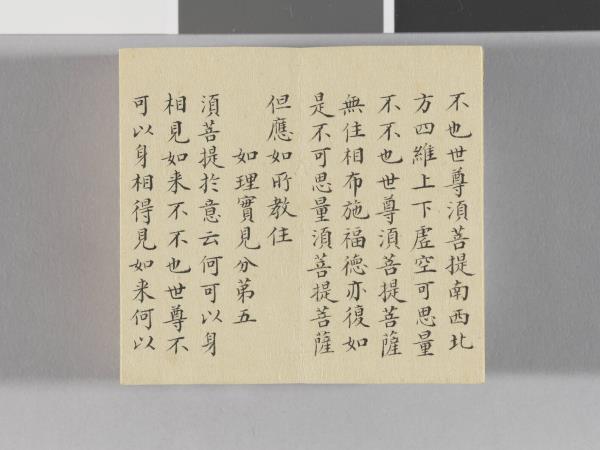 不也世尊須菩提南西北
方四維上下虛空可思量
不不也世尊須菩提菩薩
無住相布施福德亦復如
是不可思量須菩提菩薩
但應如所教住
如理實見分第五
須菩提於意云何可以身
相見如来不不也世尊不
可以身相得見如来何以